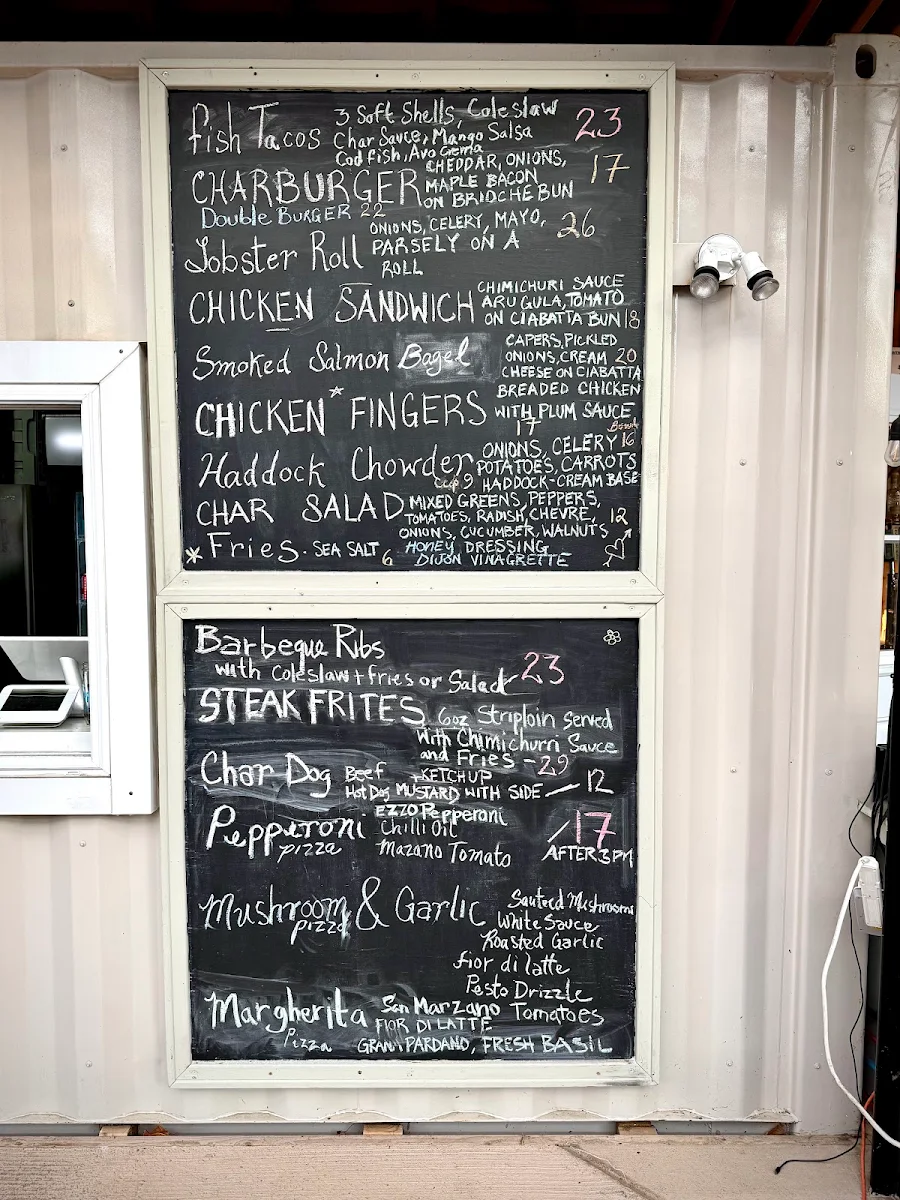 Fish Tacos 3 Soft Shells, Coleslaw 23
Char Sauce, Mango Salsa
Cod fish, Avo Crema
CHARBURGER CHEDDAR, ONIONS, 17
MAPLE BACON
ON BRIOCHE BUN
Double BURGER 22
Lobster Roll ONIONS, CELERY, MAYO, 26
PARSELY ON A
ROLL
CHICKEN SANDWICH CHIMICHURI SAUCE
ARUGULA, TOMATO
ON CIABATTA BUN 18
Smoked Salmon Bagel CAPERS, PICKLED
ONIONS, CREAM 20
CHEESE ON CIABATTA
CHICKEN FINGERS BREADED CHICKEN
WITH PLUM SAUCE
17
Haddock Chowder ONIONS, CELERY Bowl 16
POTATOES, CARROTS
cup 9 HADDOCK-CREAM BASE
CHAR SALAD MIXED GREENS, PEPPERS,
TOMATOES, RADISH, CHEVRE, 12
ONIONS, CUCUMBER, WALNUTS
HONEY DRESSING
DIJON VINAGRETTE
*Fries. SEA SALT 6
Barbeque Ribs
with Coleslaw + fries or Salad 23
STEAK FRITES 6oz Striploin Served
With Chimichurri Sauce
and Fries - 29
Char Dog Beef + KETCHUP
Hot Dog MUSTARD WITH SIDE - 12
Pepperoni EZZO Pepperoni
pizza Chilli Oil /17
Mazano Tomato AFTER 3PM
Mushroom & Garlic Sauteed Mushrooms
pizza White Sauce
Roasted Garlic
fior di latte
Pesto Drizzle
Margherita San Marzano Tomatoes
Pizza FIOR DI LATTE
GRANA PARDANO, FRESH BASIL